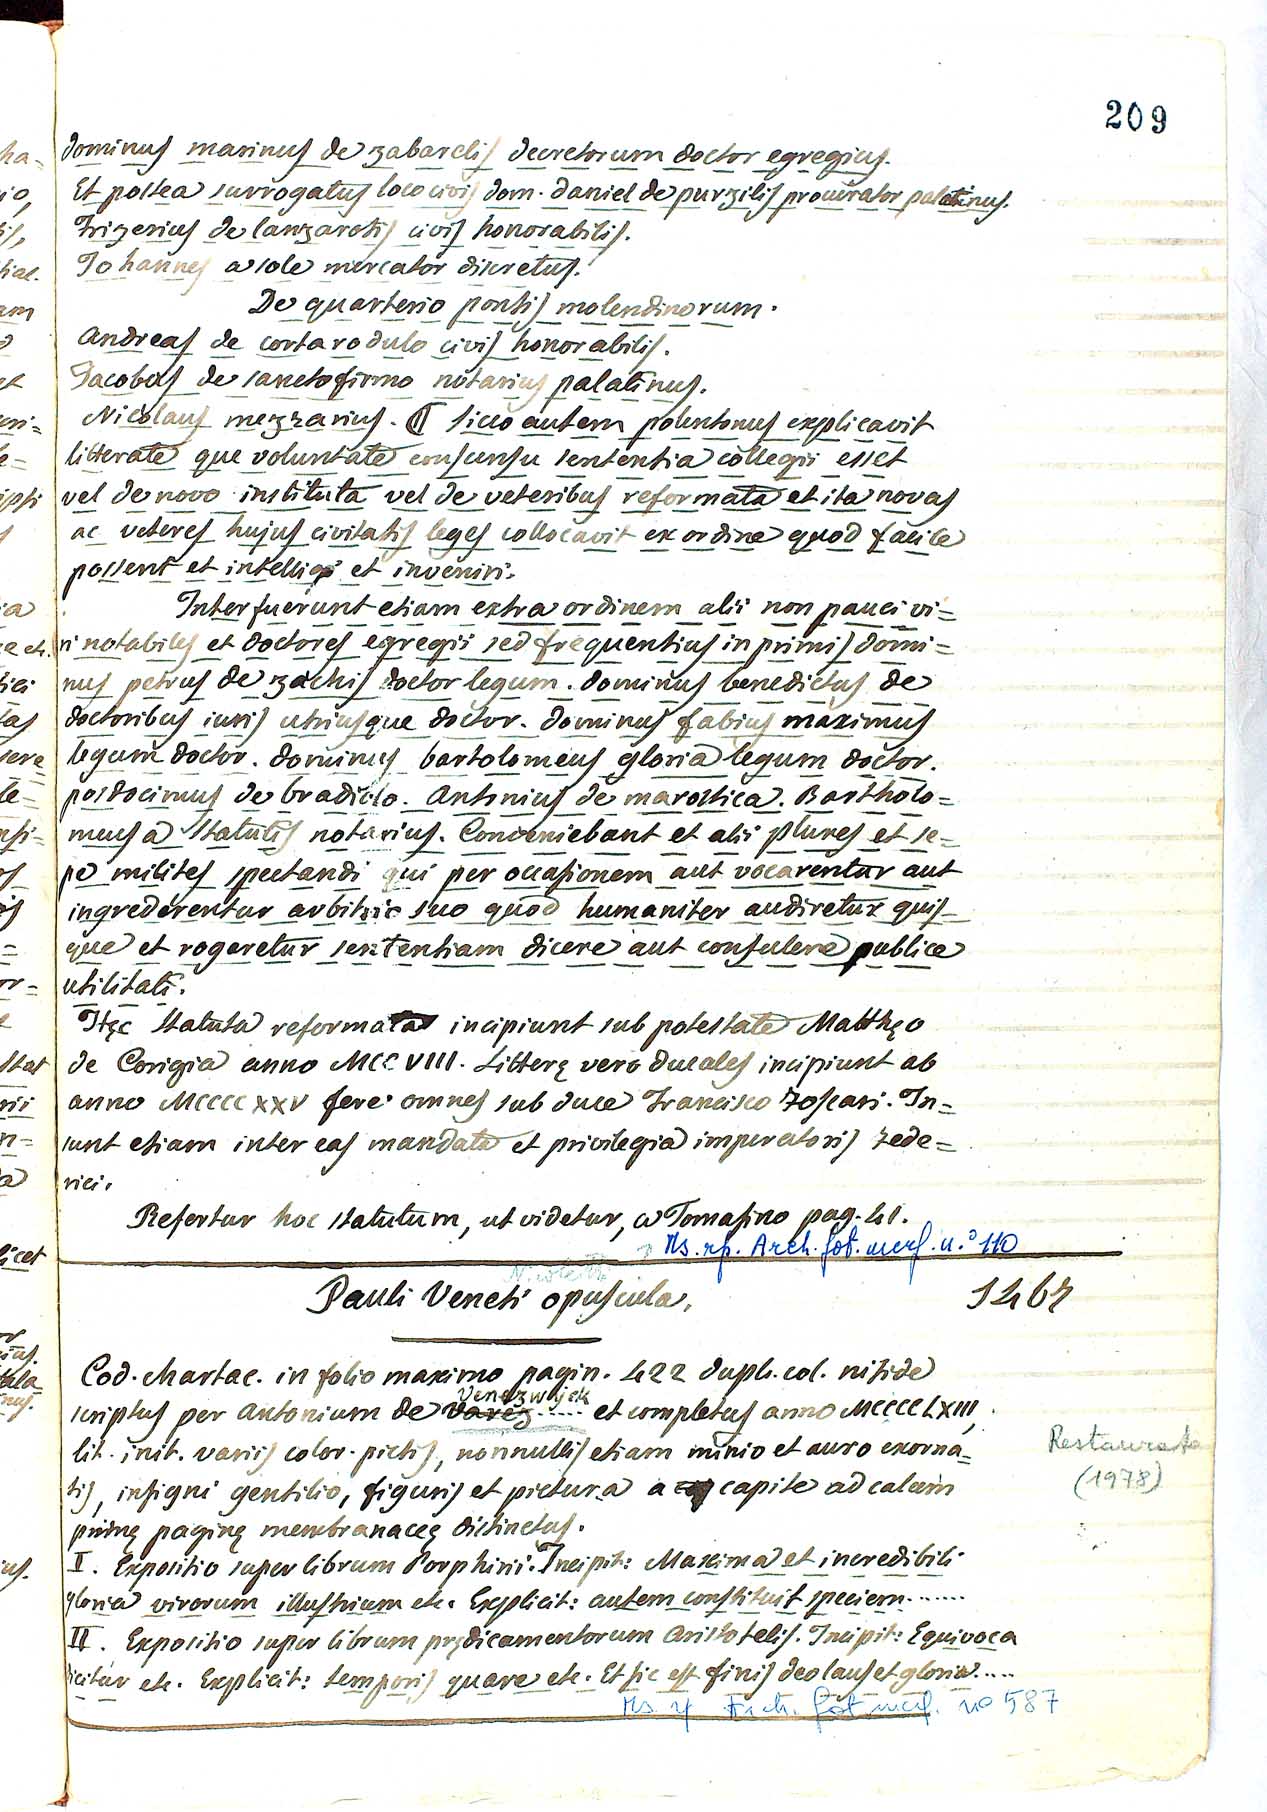 209
dominus marinus de zabarelis decretorum doctor egregius.
Et postea surrogatus loco civis dom. daniel de purzilis procurator palatinus.
Frizerius de lanzarotis civis honorabilis.
Johannes a sole mercator discretus.
De quarterio pontis molendinorum.
Andreas de cortarodulo civis honorabilis.
Jacobus de sanctofirmo notarius palatinus.
Nicolaus mezzarius. ¶ Sicco autem polentonus explicavit
litterate que voluntate consensu sententia collegii esset
vel de novo instituta vel de veteribus reformata et ita novas
ac veteres hujus civitatis leges collocavit ex ordine quod facile
possent et intelligi et inveniri.
Interfuerunt etiam extra ordinem alii non pauci vi=
ri notabiles et doctores egregii sed frequentius in primis domi=
nus petrus de zachis doctor legum. dominus benedictus de
doctoribus iuris utriusque doctor. dominus fabius maximus
legum doctor. dominus bartolomeus gloria legum doctor.
posdocimus de bradiolo. Antonius de marostica. Bartholo=
meus a statutis notarius. Conveniebant et alii plures et se=
pe milites spectandi qui per occasionem aut vocarentur aut
ingrederentur arbitrio suo quod humaniter audiretur quis=
que et rogaretur sententiam dicere aut consulere publice
utilitati.
Hęc statuta reformata incipiunt sub potestate Matthęo
de Corigia anno MCCVIII. Litterę vero ducales incipiunt ab
anno MCCCCXXV fere omnes sub duce Francisco Foscari. In=
sunt etiam inter eas mandata et privilegia imperatoris Fede=
rici.
Refertur hoc statutum, ut videtur, a Tomasino pag. 41.
Ms. rp. Arch. fot. mcrf. n.° 110
Nicoletti
Pauli Veneti opuscula. 1467
Cod. chartac. in folio maximo pagin. 422 dupl. col. nitide
Venezwijek
scriptus per Antonium de varez..... et completus anno MCCCCLXIII,
lit. init. variis color. pictis, nonnullis etiam minio et auro exorna=
tis, insigni gentilio, figuris et pictura a capite ad calcem
primę paginę membranaceę distinctus.
Restaurato
(1978)
I. Expositio super librum Porphirii. Incipit: Maxima et incredibili
gloria virorum illustrium etc. Explicit: autem constituit speciem.......
II. Expositio super librum prędicamentorum Aristotelis. Incipit: Equivoca
dicitur etc. Explicit: temporis quare etc. Et sic est finis deo laus et gloria.....
Ms. rp Arch. fot mcrf. no 587